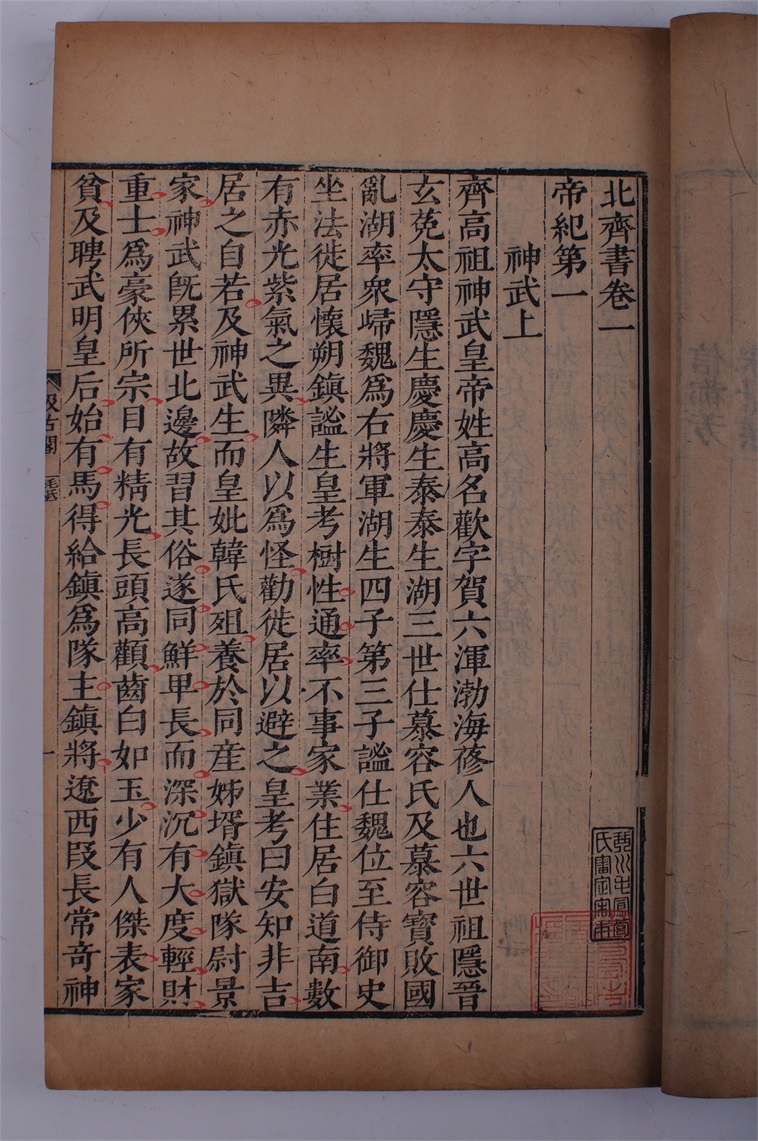 北齊書卷一
帝紀第一
神武上
齊高祖神武皇帝姓高名歡字賀六渾渤海蓨人也六世祖隱晉
玄菟太守隱生慶慶生泰泰生湖三世仕慕容氏及慕容寶敗國
亂湖率衆歸魏爲右將軍湖生四子第三子謐仕魏位至侍御史
坐法徙居懷朔鎮謐生皇考樹性通率不事家業住居白道南數
有赤光紫氣之異隣人以爲怪勸徙居以避之皇考曰安知非吉
居之自若及神武生而皇妣韓氏殂養於同産姊壻鎮獄隊尉景
家神武旣累世北邊故習其俗遂同鮮卑長而深沉有大度輕財
重士爲豪俠所宗目有精光長頭高顴齒白如玉少有人傑表家
貧及聘武明皇后始有馬得給鎮爲隊主鎮將遼西段長常奇神
汲古閣
毛氏
一